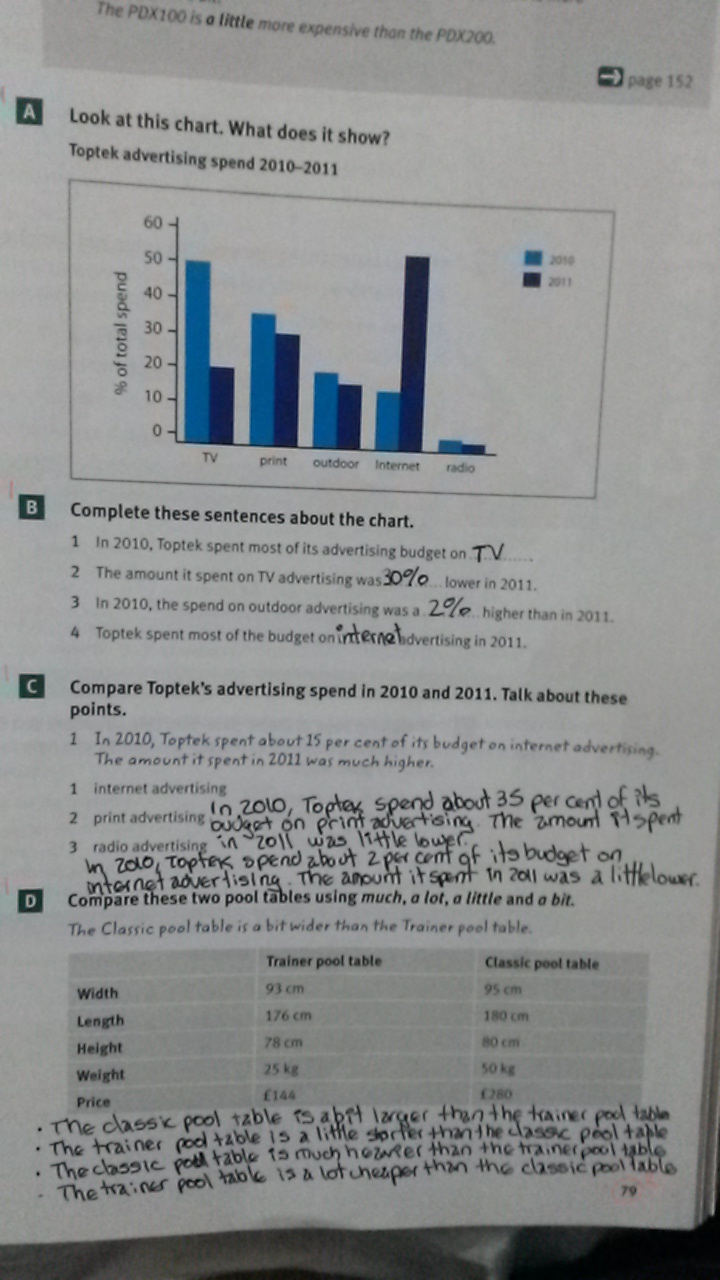 The PDX100 is a little more expensive than the PDX200.
page 152
A Look at this chart. What does it show?
Toptek advertising spend 2010–2011
60
50
40
30
20
10
0
% of total spend
2010
2011
TV print outdoor Internet radio
B Complete these sentences about the chart.
1 In 2010, Toptek spent most of its advertising budget on TV......
2 The amount it spent on TV advertising was 30% lower in 2011.
3 In 2010, the spend on outdoor advertising was a 2% higher than in 2011.
4 Toptek spent most of the budget on internet advertising in 2011.
C Compare Toptek's advertising spend in 2010 and 2011. Talk about these
points.
1 In 2010, Toptek spent about 15 per cent of its budget on internet advertising.
The amount it spent in 2011 was much higher.
1 internet advertising
2 print advertising In 2010, Toptek spend about 35 per cent of its
budget on print advertising. The amount it spent
3 radio advertising in 2011 was little lower.
In 2010, Toptek spend about 2 per cent of its budget on
internet advertising. The amount it spent in 2011 was a little lower.
D Compare these two pool tables using much, a lot, a little and a bit.
The Classic pool table is a bit wider than the Trainer pool table.
Trainer pool table Classic pool table
Width 93 cm 95 cm
Length 176 cm 180 cm
Height 78 cm 80 cm
Weight 25 kg 50 kg
Price £144 £280
• The classic pool table is a bit larger than the trainer pool table
• The trainer pool table is a little shorter than the classic pool table
• The classic pool table is much heavier than the trainer pool table
• The trainer pool table is a lot cheaper than the classic pool table
79